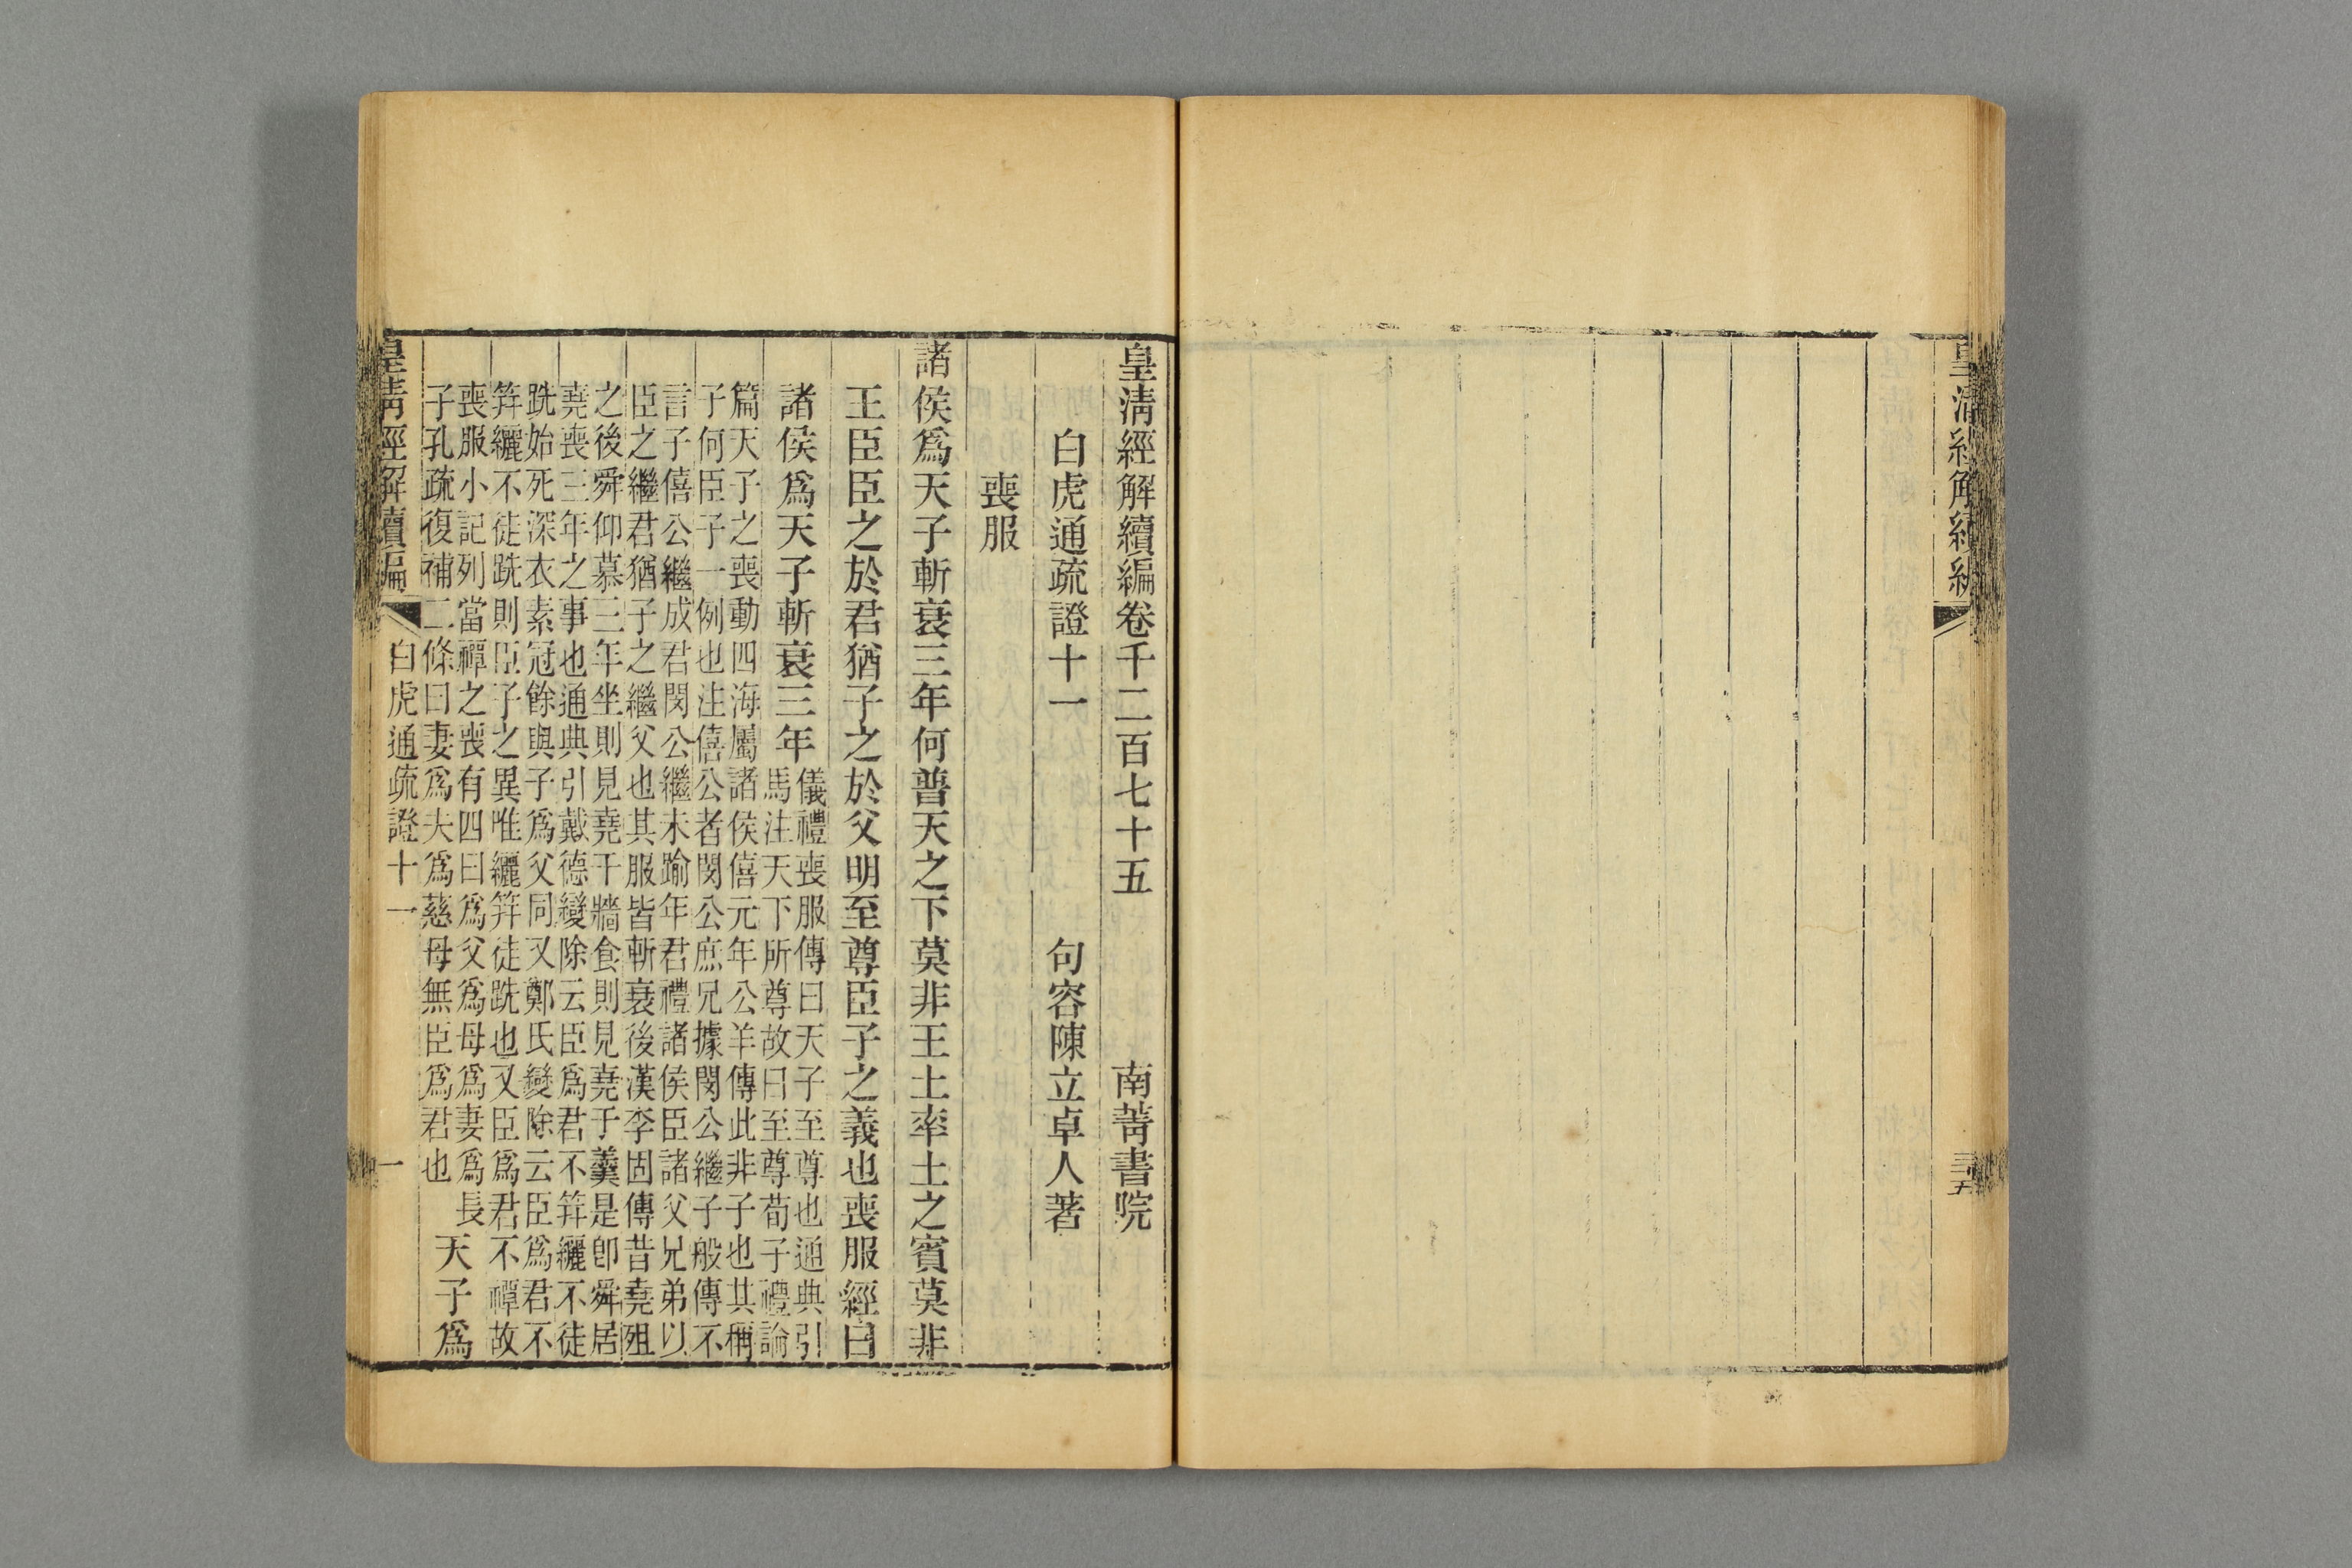 皇清經解續編
三十五
皇清經解續編卷千二百七十五　南菁書院
白虎通疏證十一　句容陳立卓人著
喪服
諸侯爲天子斬衰三年何普天之下莫非王土率土之賓莫非
王臣臣之於君猶子之於父明至尊臣子之義也喪服經曰
諸侯爲天子斬衰三年
儀禮喪服傳曰天子至尊也通典引
馬注天下所尊故曰至尊荀子禮論
篇天子之喪動四海屬諸侯僖元年公羊傳此非子也其稱
子何臣子一例也注僖公者閔公庶兄據閔公繼子般傳不
言子僖公繼成君閔公繼未踰年君禮諸侯臣諸父兄弟以
臣之繼君猶子之繼父也其服皆斬衰後漢李固傳昔堯殂
之後舜仰慕三年坐則見堯于牆食則見堯于羹是卽舜居
堯喪三年之事也通典引戴德變除云臣爲君不筓纚不徒
跣始死深衣素冠餘與子爲父同又鄭氏變除云臣爲君不
筓纚不徒跣則臣子之異唯纚筓徒跣也又臣爲君不禫故
喪服小記列當禫之喪有四曰爲父爲母爲妻爲長
子孔疏復補二條曰妻爲夫爲慈母無臣爲君也
天子爲
皇清經解續編
白虎通疏證十一
一